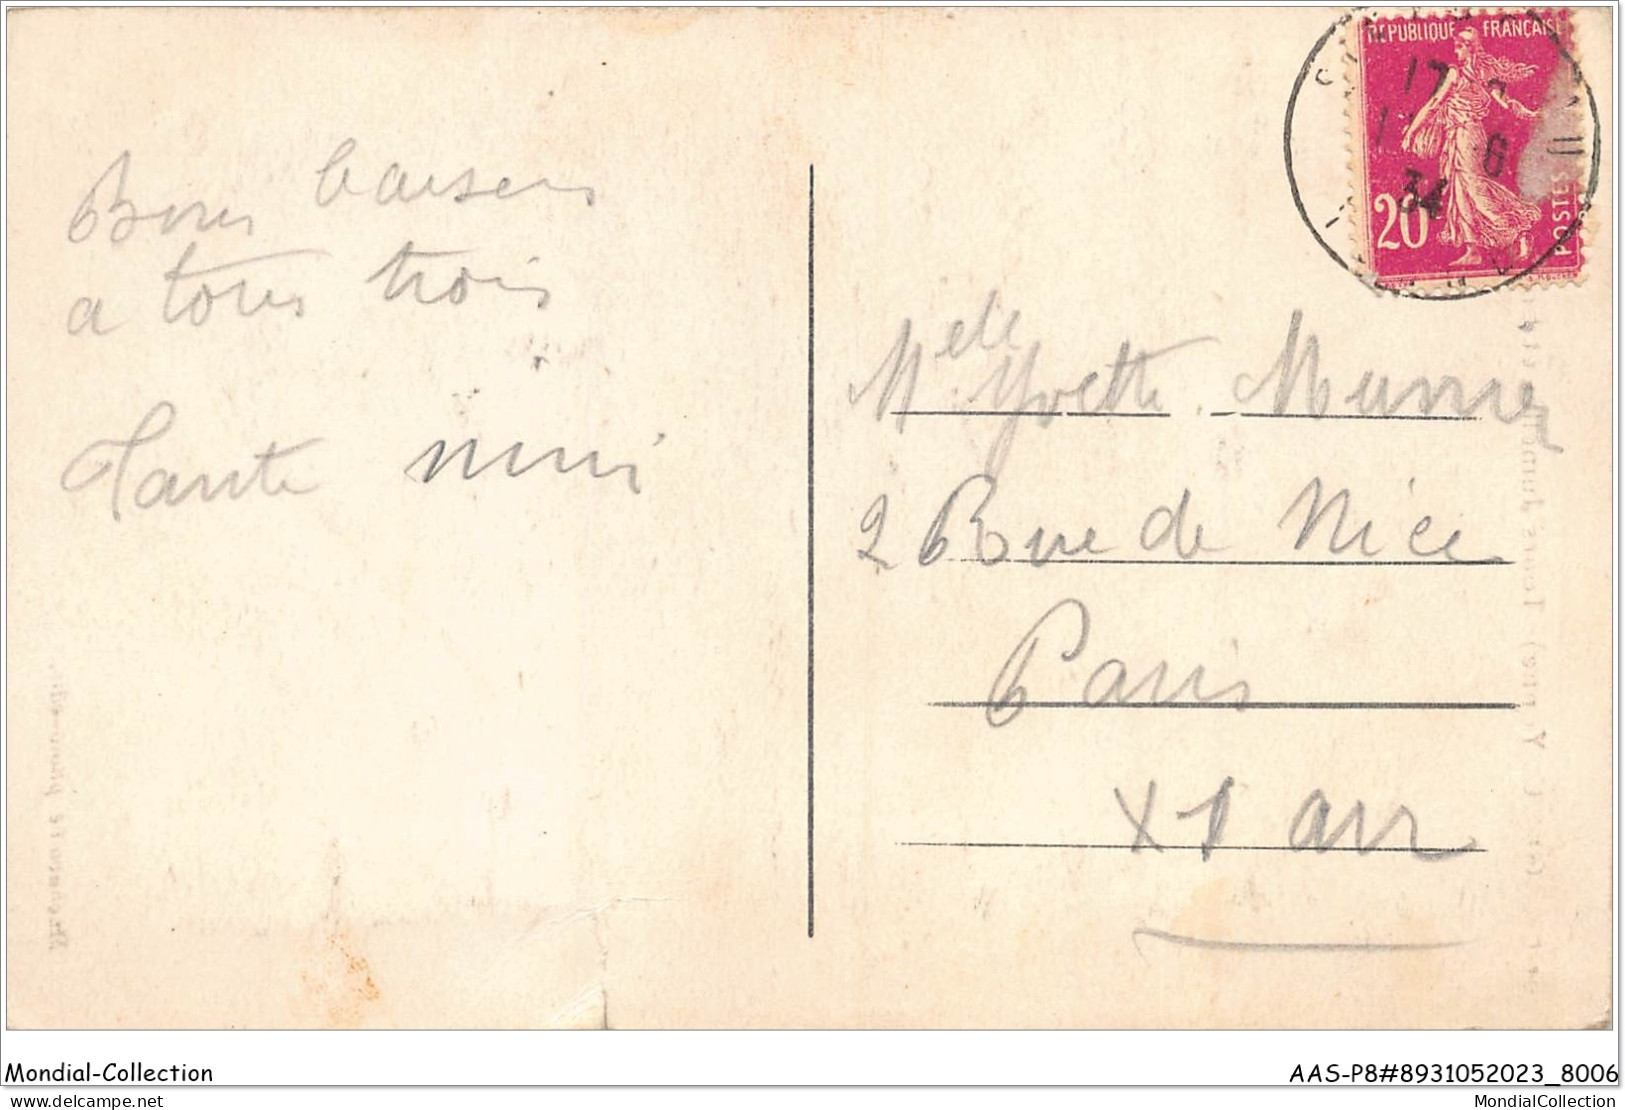 Bons baisers
a tous trois
Tante mimi
RÉPUBLIQUE FRANÇAISE
17
6
34
20
POSTES
Melle Yvette
2 Rue de Nice
Paris
XI arr
Mondial-Collection
AAS-P8#8931052023_8006
www.delcampe.net
MondialCollection